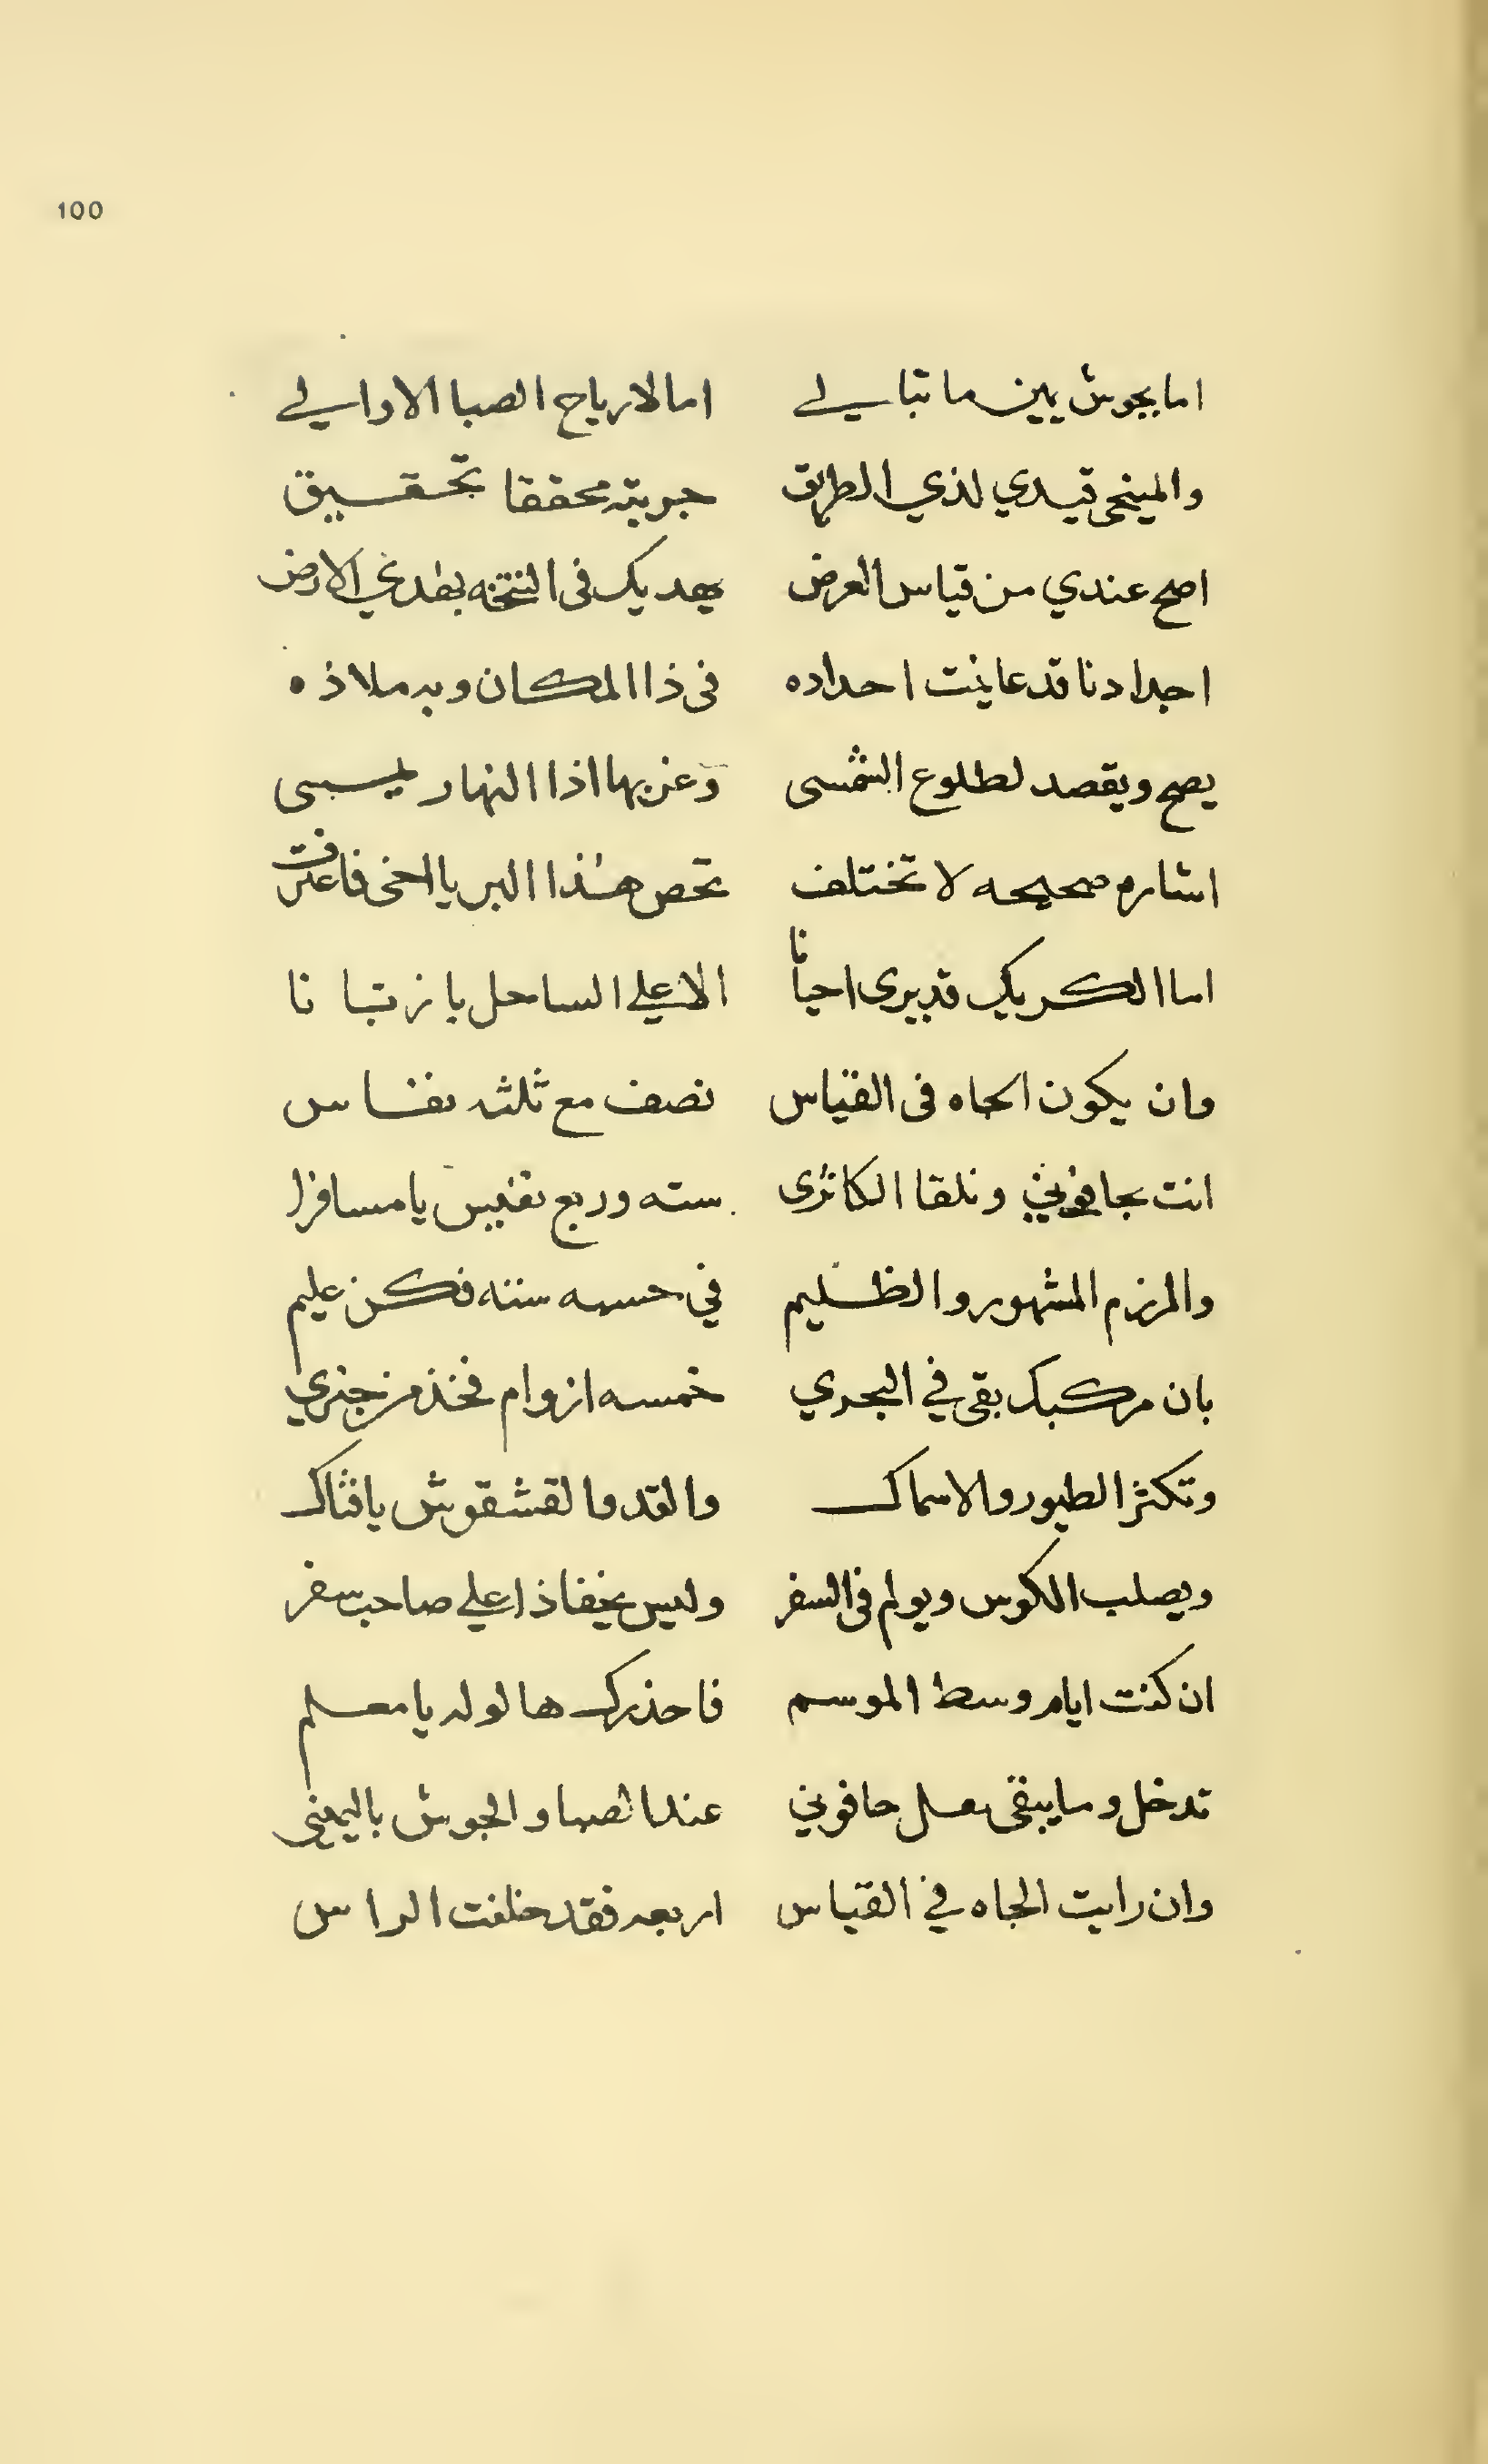 100
اما بجوش يمين ما تبالي اما لارياح الصبا الاوالي
والميخى قيدي لذي الطريق جربته محققا تحقيق
اصح عندي من قياس العرض يهديك في النتخه بغدي الارض
اجدادنا قد عاينت احداده في ذا المكان وبه ملاذه
يصح ويقصد لطلوع الشمسى وغربها اذا النهار يمسى
اشاره صحيحه لا تختلف تخص هذا البر يا اخى فاعترف
اما الكريك قد يرى احيانا الا علي الساحل بازتبانا
وان يكون الجاه في القياس نصف مع ثلثه نفاس
انت بجافوني وتلقا الكاثرى سته وربع نفيس يا مسافرا
والمرزم المشهور والظليم في خمسه سته فكن عليم
بان مركبك بقى في البحري خمسه ازوام فخذ من جنري
وتكثر الطيور والاسماك والقد والقشقوش يا فتاك
ويصلب الكوس ويولم في السفر وليس يخفا ذا علي صاحب سفر
ان كنت ايام وسط الموسم فاحذرك هالوله يا معلم
تدخل وما يبقى معك حافوني عند الصبا والجوش باليمنى
وان رايت الجاه في القياس اربعه فقد خلفت الراس